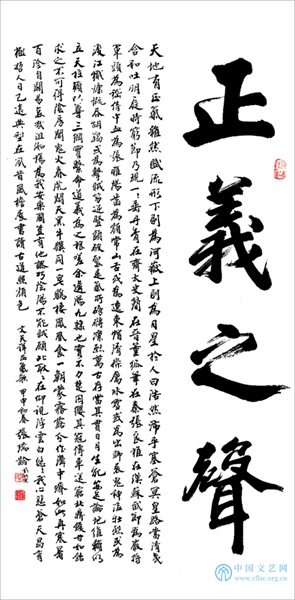 正義之聲
天地有正氣雜然賦流形下則為河嶽上則為日星於人曰浩然沛乎塞蒼冥皇路當清夷
含和吐明庭時窮節乃現一一垂丹青在齊太史簡在晉董狐筆在秦張良椎在漢蘇武節為嚴將
軍頭為嵇侍中血為張睢陽齒為顏常山舌或為遼東帽清操厲冰雪或為出師表鬼神泣壯烈或為
渡江楫慷慨吞胡羯或為擊賊笏逆豎頭破裂是氣所磅礴凜烈萬古存當其貫日月生死安足論地維賴以
立天柱賴以尊三綱實繫命道義為之根嗟余遘陽九隸也實不力楚囚纓其冠傳車送窮北鼎鑊甘如飴
求之不可得陰房闃鬼火春院閉天黑牛驥同一皂雞棲鳳凰食一朝蒙霧露分作溝中瘠如此再寒暑
百沴自辟易嗟哉沮洳場為我安樂國豈有他繆巧陰陽不能賊顧此耿耿在仰視浮雲白悠悠我心悲蒼天曷有
極哲人日已遠典型在夙昔風檐展書讀古道照顏色 文天祥正氣歌 甲申初春 張瑞齡
中国文艺网
www.cflac.org.cn